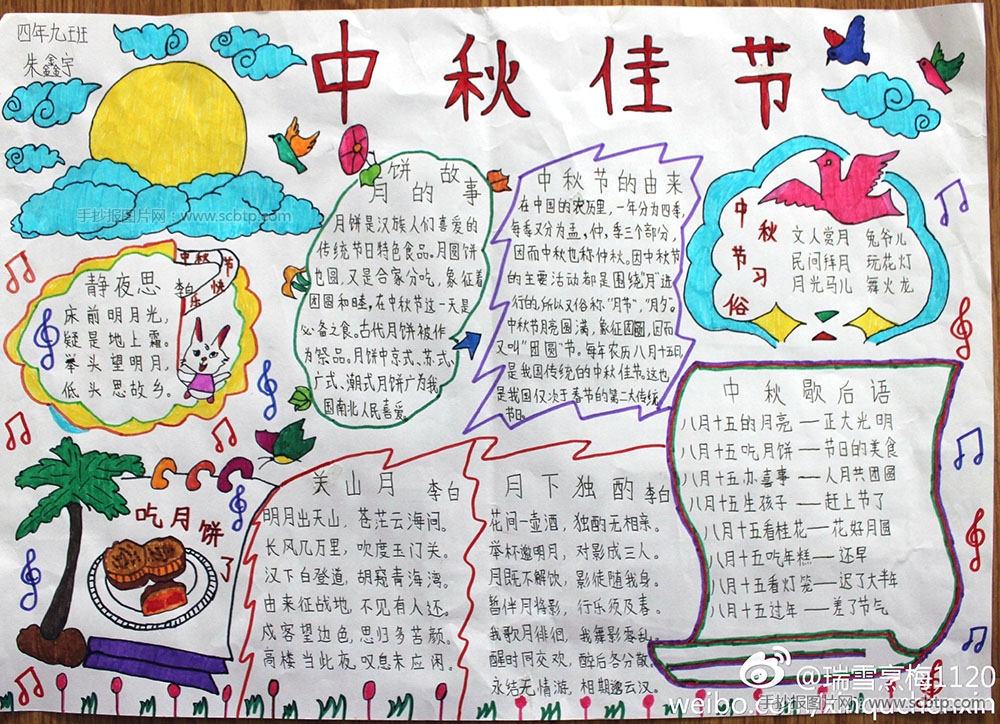 四年九班
朱鑫宇
中秋佳节
手抄报图片网:www.scbtp.com
静夜思 李白
床前明月光,
疑是地上霜。
举头望明月,
低头思故乡。
中秋节
快乐
月饼的故事
月饼是汉族人们喜爱的
传统节日特色食品。月圆饼
也圆,又是合家分吃,象征着
团圆和睦,在中秋节这一天是
必备之食。古代月饼被作
为祭品。月饼中京式、苏式、
广式、潮式月饼广为我
国南北人民喜爱。
中秋节的由来
在中国的农历里,一年分为四季,
每季又分为孟,仲,季三个部分,
因而中秋也称仲秋。因中秋节
的主要活动都是围绕"月"进
行的,所以又俗称"月节","月夕"。
中秋节月亮圆满,象征团圆,因而
又叫"团圆"节。每年农历八月十五日,
是我国传统的中秋佳节。这也
是我国仅次于春节的第二大传统
节日。
中秋节习俗
文人赏月 兔爷儿
民间拜月 玩花灯
月光马儿 舞火龙
吃月饼了
关山月 李白
明月出天山,苍茫云海间。
长风几万里,吹度玉门关。
汉下白登道,胡窥青海湾。
由来征战地,不见有人还。
戍客望边色,思归多苦颜。
高楼当此夜,叹息未应闲。
月下独酌 李白
花间一壶酒,独酌无相亲。
举杯邀明月,对影成三人。
月既不解饮,影徒随我身。
暂伴月将影,行乐须及春。
我歌月徘徊,我舞影零乱。
醒时同交欢,醉后各分散。
永结无情游,相期邈云汉。
中秋歇后语
八月十五的月亮—正大光明
八月十五吃月饼—节日的美食
八月十五办喜事—人月共团圆
八月十五生孩子—赶上节了
八月十五看桂花—花好月圆
八月十五吃年糕—还早
八月十五看灯笼—迟了大半年
八月十五过年—差了节气
@瑞雪烹梅1120
手抄报图片网:www.scbtp.com